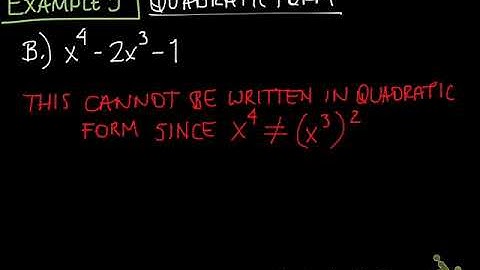 EXAMPLE 5 QUADRATIC FORM
B.) x⁴ - 2x³ - 1
THIS CANNOT BE WRITTEN IN QUADRATIC
FORM SINCE x⁴ ≠ (x³)²